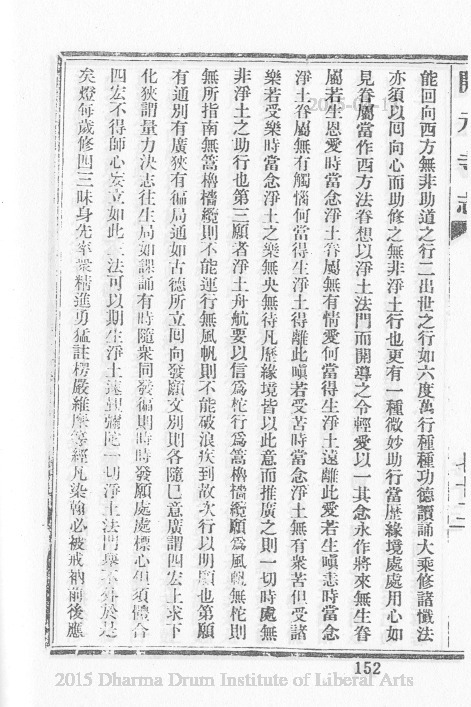 開元寺志
能回向西方無非助道之行二出世之行如六度萬行種種功德讀誦大乘修諸懺法
亦須以回向心而助修之無非淨土行也更有一種微妙助行當歷緣境處處用心如
見眷屬當作西方法眷想以淨土法門而開導之令輕愛以一其念永作將來無生眷
屬若生恩愛時當念淨土眷屬無有情愛何當得生淨土遠離此愛若生嗔恚時當念
淨土眷屬無有觸惱何當得生淨土得離此嗔若受苦時當念淨土無有衆苦但受諸
樂若受樂時當念淨土之樂無央無待凡歷緣境皆以此意而推廣之則一切時處無
非淨土之助行也第三願者淨土舟航要以信爲柁行爲篙櫓檣纜願爲風帆無柁則
無所指南無篙櫓檣纜則不能運行無風帆則不能破浪疾到故次行以明願也第願
有通別有廣狹有徧局通如古德所立回向發願文別則各隨己意廣謂四宏上求下
化狹謂量力決志往生局如課誦有時隨衆同發徧則時時發願處處標心但須體合
四宏不得師心妄立如此三法可以期生淨土速覲彌陀一切淨土法門舉不外於是
矣燈每歲修四三昧身先率衆精進勇猛註楞嚴維摩等經凡染翰必被戒衲前後應
152
2015 Dharma Drum Institute of Liberal Arts